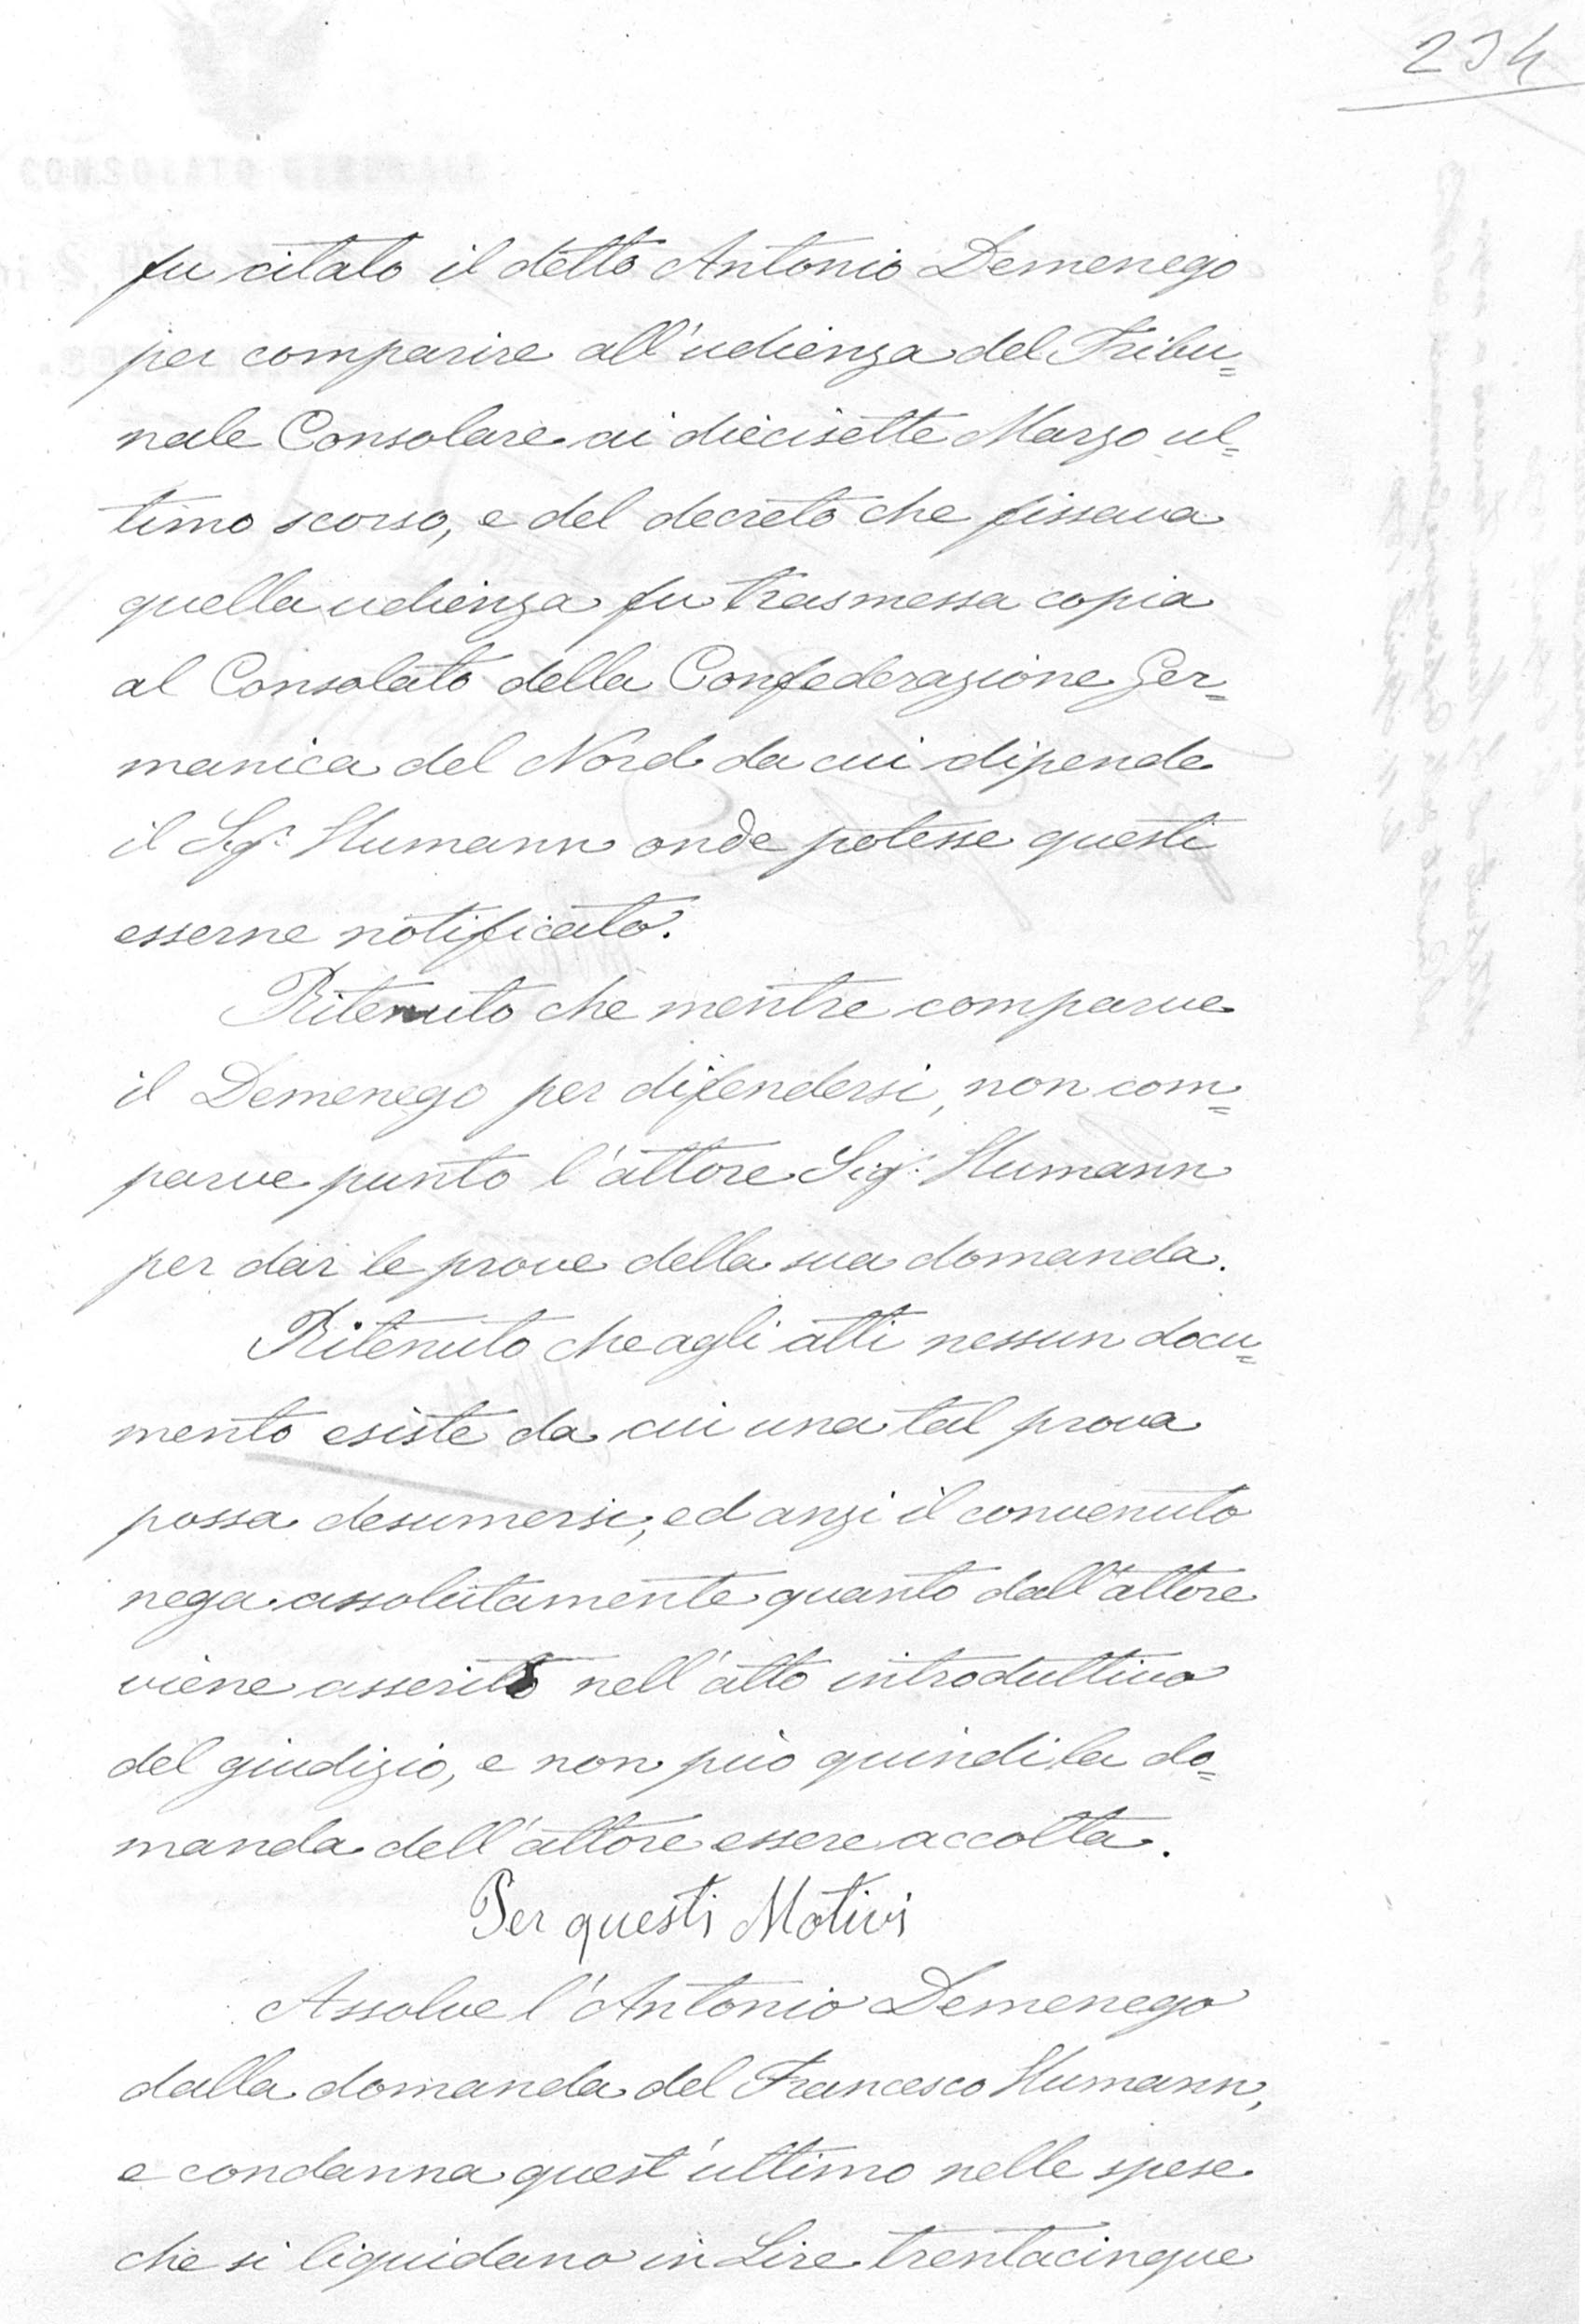 234
CONSOLATO GENERALE
fu citato il detto Antonio Demenego
per comparire all'udienza del Tribu=
nale Consolare ai diecisette Marzo ul=
timo scorso, e del decreto che fissava
quella udienza fu trasmessa copia
al Consolato della Confederazione Ger=
manica del Nord da cui dipende
il Sigr. Humann onde potesse questi
esserne notificato.
Ritenuto che mentre comparve
il Demenego per difendersi, non com=
parve punto l'attore Sigr. Humann
per dar le prove della sua domanda.
Ritenuto che agli atti nessun docu=
mento esiste da cui una tal prova
possa desumersi, ed anzi il convenuto
nega assolutamente quanto dall'attore
viene asserito nell'atto introduttivo
del giudizio, e non può quindi la do=
manda dell'attore essere accolta.
Per questi Motivi
Assolve l'Antonio Demenego
dalla domanda del Francesco Humann,
e condanna quest'ultimo nelle spese
che si liquidano in Lire trentacinque